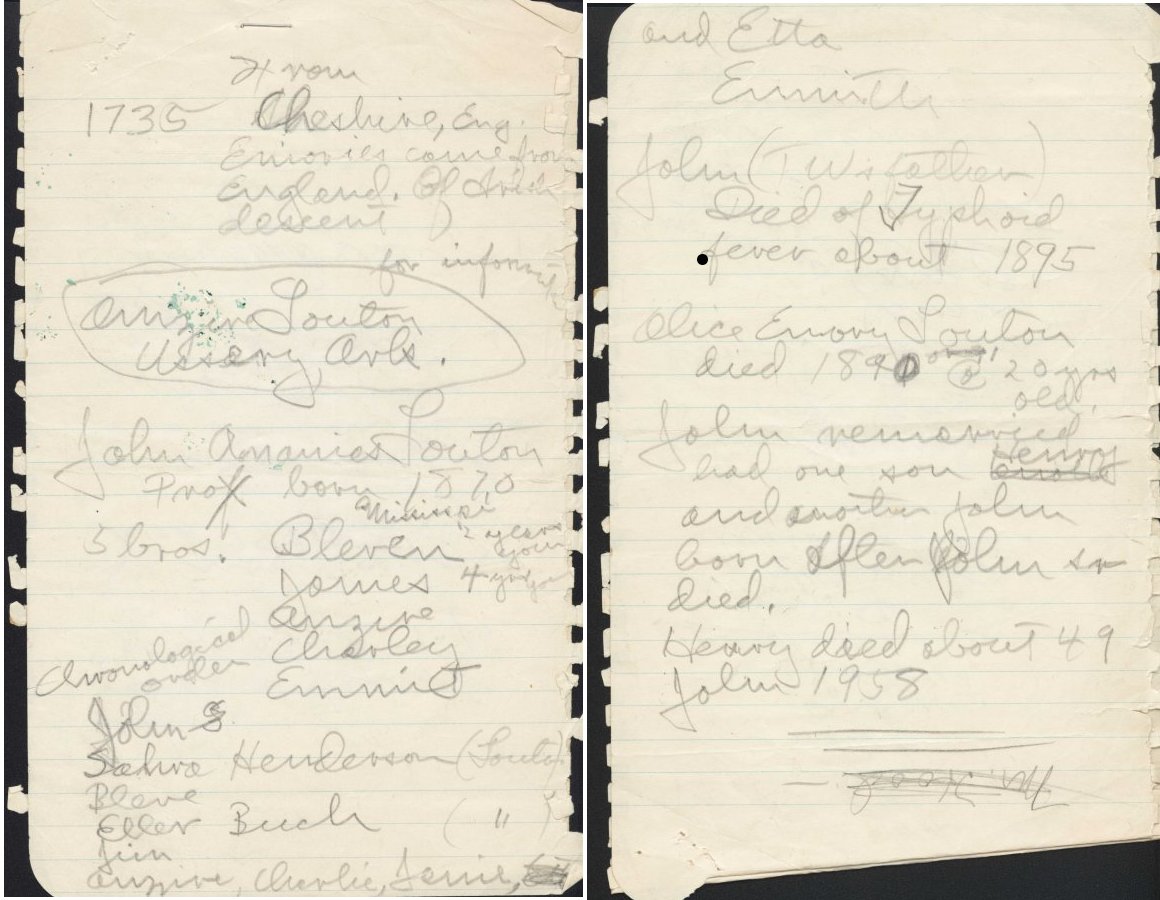 From
1735 Cheshire, Eng.
Emories came from
England. Of Irish
descent )
for inform
Anzire Louton
Ussery Arls.
John Ananies Louton
Prof born 1870
Mississi
5 bros! Bleven 2 years
youn
James 4 yr
Anzire
Chronological Charley
order Emmit
John
Henderson (Louto
Bleve
Ellen Buch ( " )
Jim
Anzire, Charlie, Jamie,
and Etta
Emmitt
John (TW's father)
Died of Typhoid
fever about 1895
Alice Emory Louton
died 1890 20 yrs
old.
John remarried
had one son Henry
and another John
born after John sr
died.
Henry died about 49
John 1958